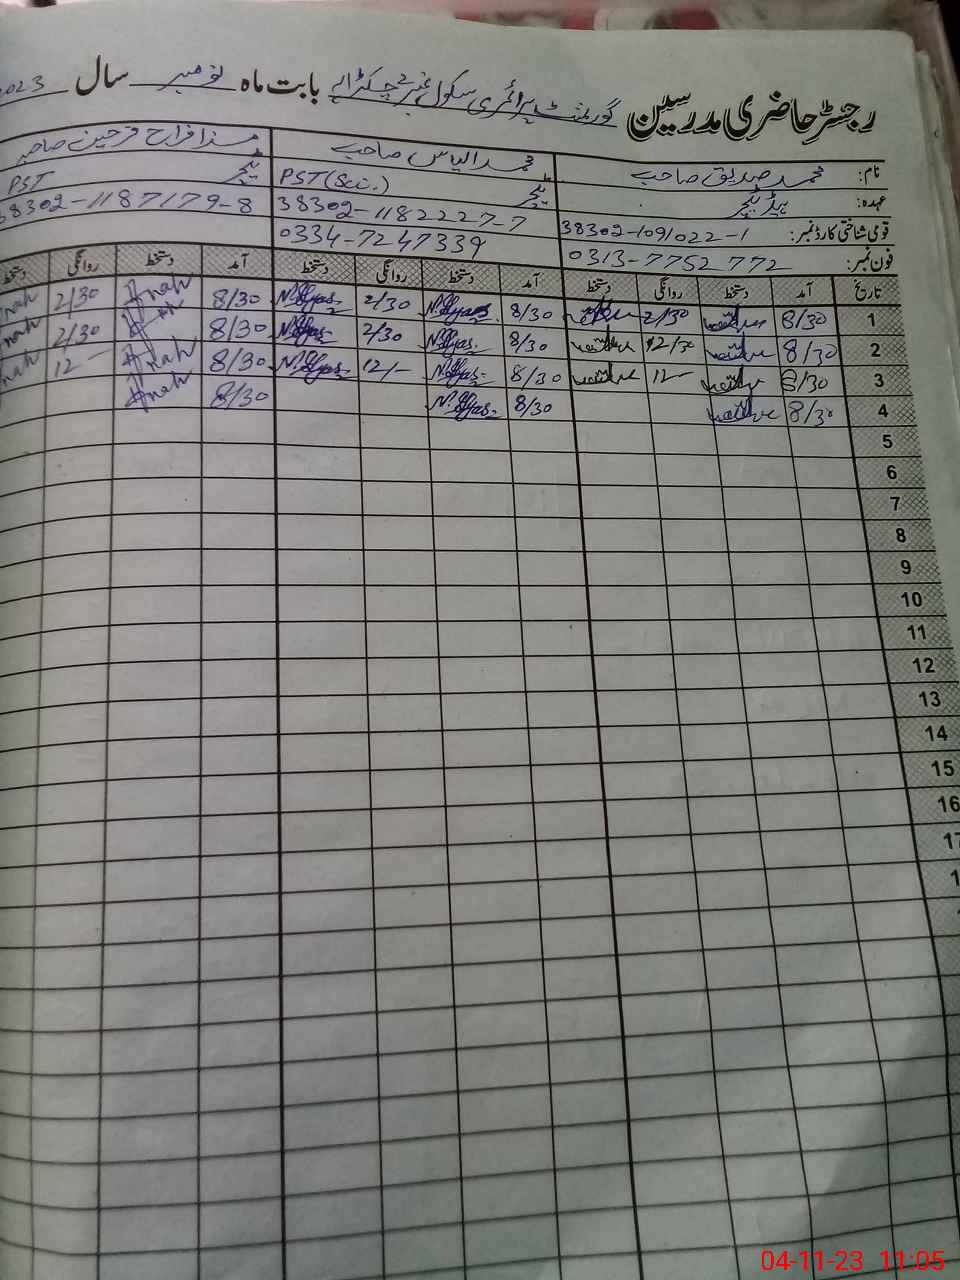 رجسٹر حاضری مدرسین گورنمنٹ پرائمری سکول نمبر 2 چکڑالہ بابت ماہ نومبر سال 2023
نام: محمد صدیق صاحب محمد الیاس صاحب فرحین صاحبہ
عہدہ: ہیڈ ٹیچر ٹیچر PST (Sci.) ٹیچر PST
قومی شناختی کارڈ نمبر: 38302-1091022-1 38302-1182227-7 38302-1187179-8
فون نمبر: 0313-7752772 0334-7247339
تاریخ آمد دستخط روانگی دستخط آمد دستخط روانگی دستخط آمد دستخط روانگی دستخط
1 8/30 2/30 8/30 N.Ilyas 2/30 N.Ilyas 8/30 2/30
2 8/30 2/30 8/30 N.Ilyas 2/30 N.Ilyas 8/30 2/30
3 8/30 12 8/30 N.Ilyas 12/- N.Ilyas 8/30 12
4 8/30 8/30 N.Ilyas 8/30
5
6
7
8
9
10
11
12
13
14
15
16
17
04-11-23 11:05